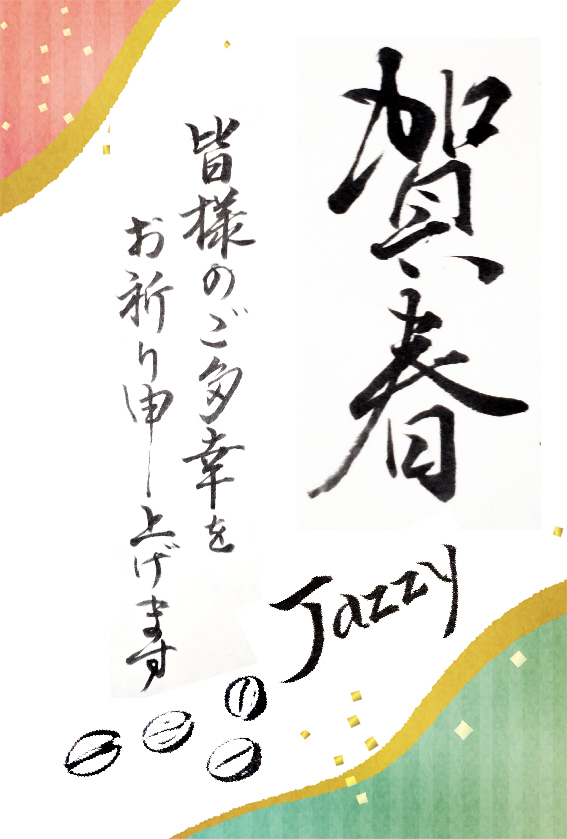 賀春
皆様のご多幸を
お祈り申し上げます
Jazzy